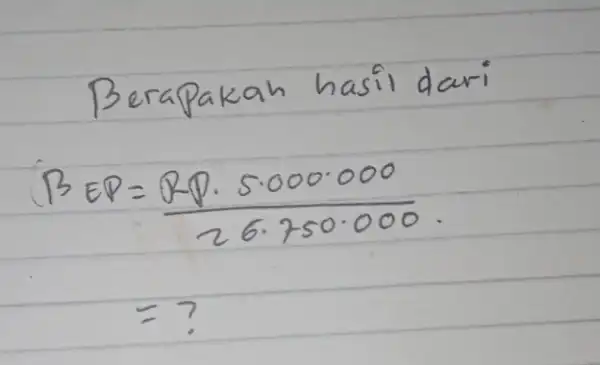 Berapakah hasil dari
BEP = RP. 5.000.000
26.750.000.
= ?